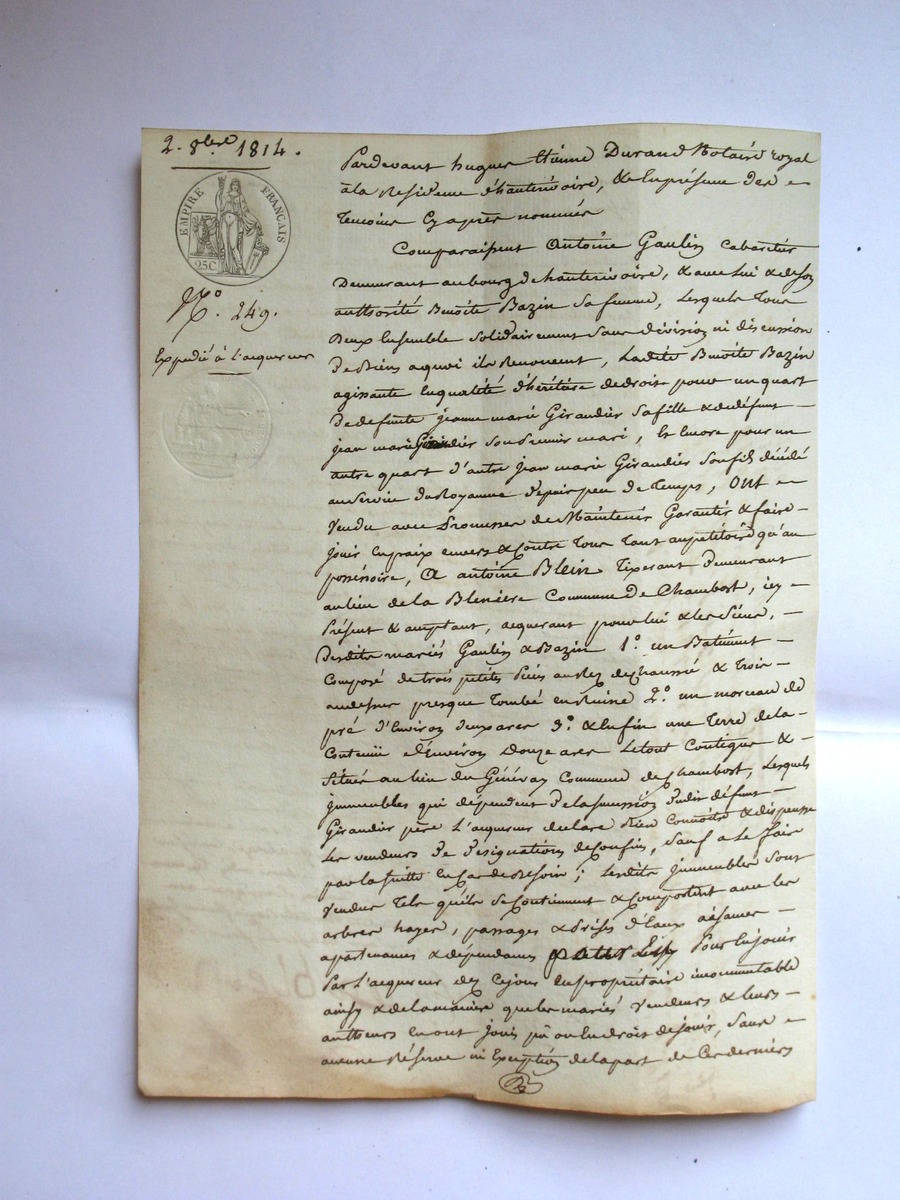 2. 8bre 1814.
EMPIRE FRANÇAIS
25C
N.º 249.
Expedié à l'acquereur
Pardevant hugues Etienne Durand Notaire royal
à la Residence d'hauterivoire, & en présence des
Temoins Cy après nommés
Comparaissent Antoine Gaulin Cabaretier
Demeurant au bourg de hauterivoire, & avec lui & de son
authorité Benoite Bazin sa femme, Lesquels tous
Deux Ensemble solidairement sans division ni discussion
De biens a quoi ils Renoncent, Ladite Benoite Bazin
agissante en qualité d'héritière de droit pour un quart
De defunte jeanne marie Giraudier sa fille & de défunt
jean marie Giraudier son premier mari, Et Encore pour un
autre quart d'autre jean marie Giraudier son fils décédé
au service du Royaume depuis peu de temps, Ont
Vendu avec Promesses de Maintenir Garantir & faire
jouir en paix envers & Contre Tous tant au petitoire qu'au
possessoire, A antoine Blein Tixerant Demeurant
au lieu de la Blenière Commune De Chambost, icy
Présent & acceptant, acquerant pour lui & les siens,
Desdits mariés Gaulin & Bazin 1.º un Batiment
Composé de trois petits Pièces au rez de chaussé & trois
au dessus presque tombé en Ruine 2.º un morceau de
pré d'Environ deux ares 3.º & Enfin une Terre de la
Contenue d'Environ Douze ares Le tout Contigue &
Situés au lieu du Génévay Commune de Chambost, Lesquels
jmmeubles qui dépendent De la succession dudit défunt
Giraudier père L'acquereur declare Bien Connoitre & dispense
Les vendeurs De Désignation de Confins, sauf a le faire
par la suitte en Cas de Besoin ; Lesdits jmmeubles sont
Vendus Tels qu'ils se Contiennent & Comportent avec les
arbres hayes, passages & Prises d'Eaux aisances
apartenances & dépendances Pour En jouir
Par L'acquereur dez Cejour En propriétaire incommutable
ainsy & de la manière que les mariés Vendeurs & leurs
autheurs en ont jouis pû ou en droit de jouir, sans
aucune Réserve ni Exception de la part de Ces derniers